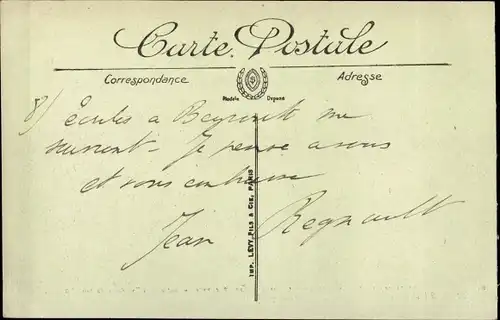 Carte Postale
Correspondance
Adresse
Modèle Déposé
8)
Écrites à Beyrouth me
suivent. Je pense à vous
et vous
Jean Regnault
IMP. LEVY, FILS & CIE, PARIS